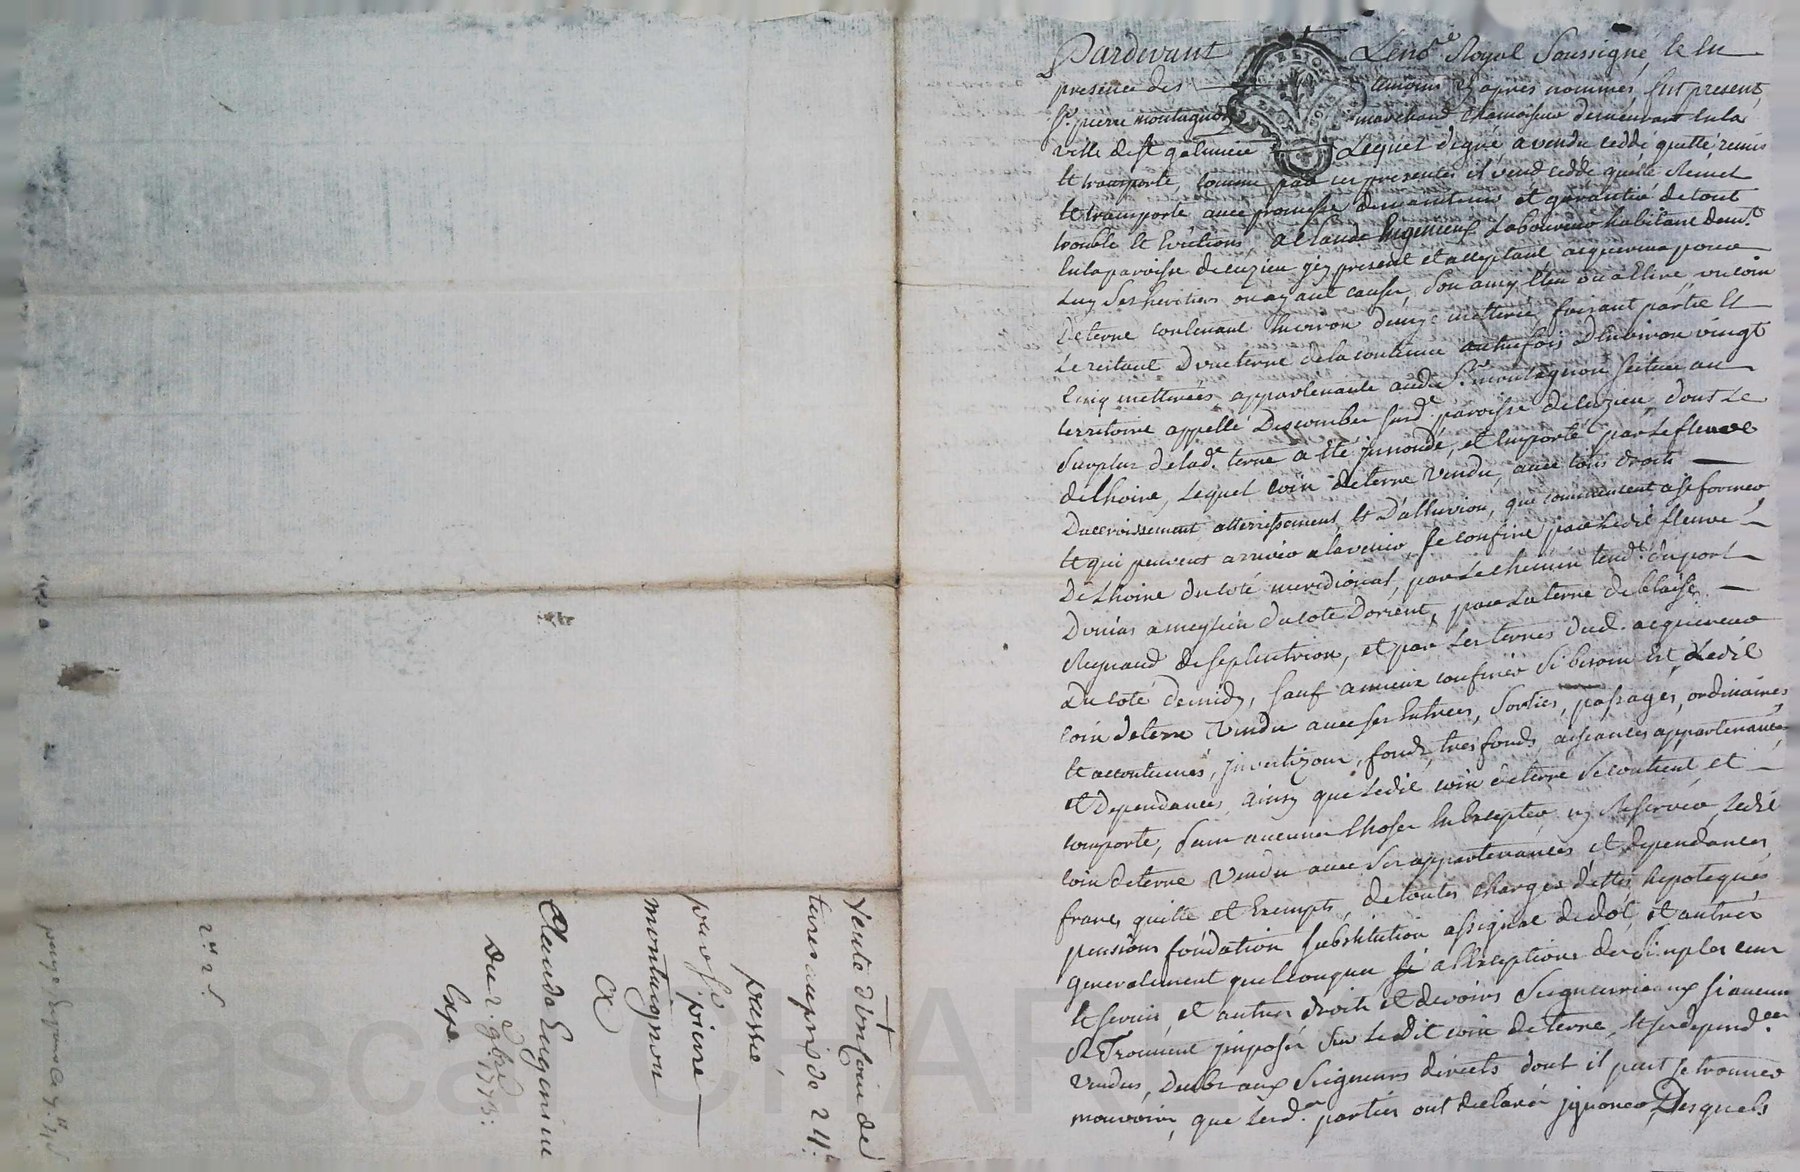 Pardevant Lenore Royal Soussigné, et en
presence des temoins cy apres nommés fut present,
Sr. pierre montagnon marchand chamoiseur demeurant en la
ville de st galmier Lequel de gré a vendu ceddé quitté remis
et transporté, comme par ces presentes il vend cedde quitte Remet
et transporte avec promesse de maintenir et garantir de tout
trouble et Evictions a Claude Eugenieux Laboureur habitant demt.
en la paroisse de cuzieu icy present et acceptant acquereur pour
Luy Ses heritiers ou ayant cause, Son amy élu ou a Elire, un coin
de terre contenant Environ deux metterée faisant partie et
Le restant d'une terre de la contenue autrefois d'Environ vingt
Cinq metterées appartenante audit Sr. montagnon Scituée au
territoire appellé Descombes surde. paroisse de cuzieu, dont Le
Surplus de lade. terre a Eté innondé, et Emporté par Le fleuve
de Lhoire, Lequel coin de terre vendu, avec tous droits
D'accroissement atterrissement et D'alluvion, qui commencent a se former
et qui peuvent arriver a lavenir, Se confine par Ledit fleuve
De Lhoire du coté meridional, par Le chemin tendt. du port
a meylieu du coté Dorient, par La terre de blaise
Reynaud de Septentrion, et par Les terres dud. acquereur
du coté de midy, Sauf a mieux confiner Si besoin Est, Ledit
coin de terre vendu avec Ses Entrées, Sorties, passages, ordinaires
et accoutumés, fonds, tres fonds, aisances appartenances
et dependances, ainsy que Ledit coin de terre Se contient et
comporte, Sans aucunes choses En Excepter ny Reserver, Ledit
coin de terre vendu avec Ses appartenances et dependances,
franc, quitte et Exempts, de toutes charges dettes hypoteques
pensions fondation Substitution assignat de dot, et autres
generalement quelconques a l'Exceptions des Simples cens
et servis et autres droits et devoirs Seigneuriaux Si aucuns
Se Trouvent imposés Sur Ledit coin de terre, et Ses depend.ces
vendus, deubs aux Seigneurs directs dont il peut Se trouver
mouvoir, que Lesd. parties ont declaré ignorer, Desquels
Vente d'un coin de
terre au prix de 24 l.
passé
par Sr. pierre
montagnon
a
Claude Eugenieux
Du 2e. 9bre. 1773:
Expe.